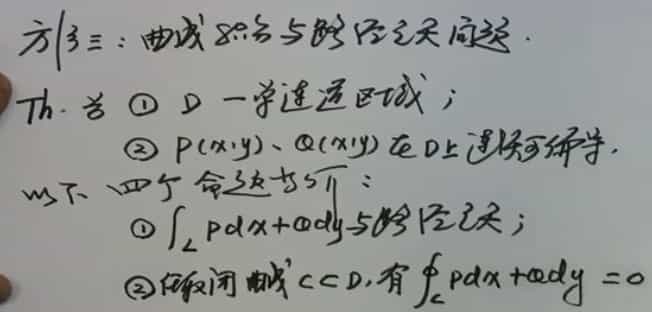 方法三：曲线积分与路径无关问题.
Th. 若 ① D 一单连通区域；
② P(x,y)、Q(x,y) 在D上连续可偏导.
以下四个命题等价：
① ∫_L Pdx+Qdy与路径无关；
② 任取闭曲线 C⊂D, 有 ∮_C Pdx+Qdy = 0